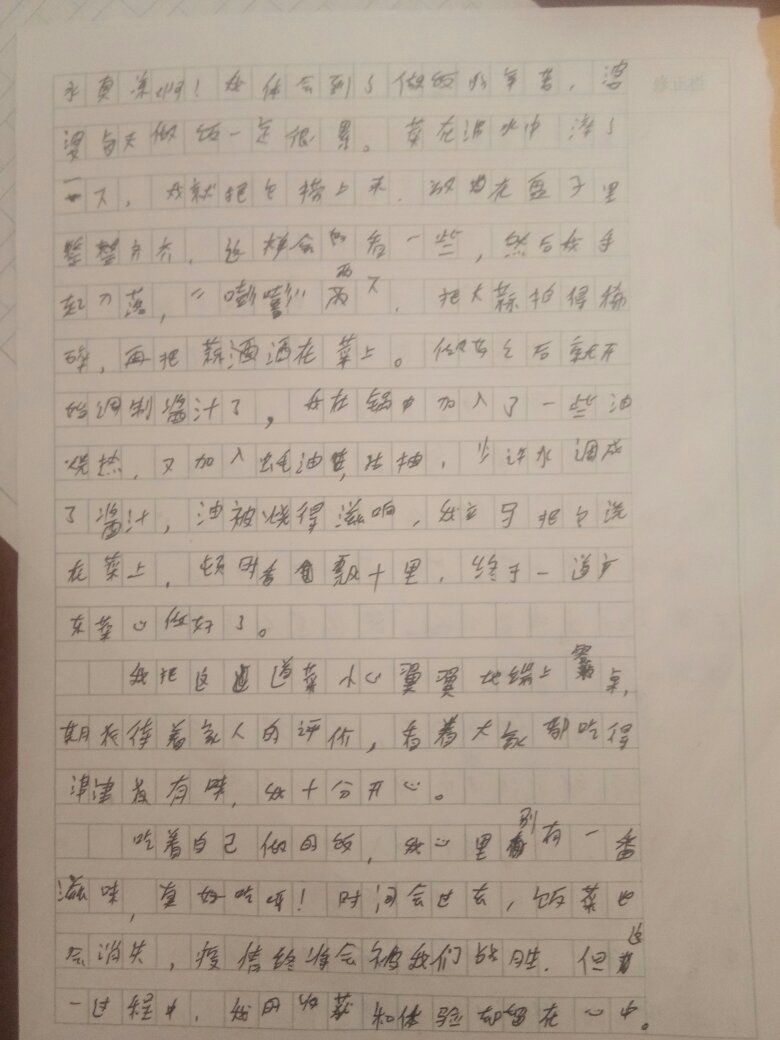 永真累啊！我体会到了做饭的辛苦，婆
婆每天做饭一定很累。菜在沸水中滚了
一下，我就把它捞上来，放在盘子里
整整齐齐，这样会好看一些，然后我手
起刀落，“嘭嘭”两下，把大蒜拍得稀
碎，再把蒜洒洒在菜上。做完之后就开
始调制酱汁了，我在锅中加入了一些油
烧热，又加入蚝油，生抽，少许水调成
了酱汁，油被烧得滋滋响，我立马把它浇
在菜上，顿时香飘十里，终于一道广
东菜心做好了。
我把这道菜小心翼翼地端上餐桌，
期待着家人的评价，看着大家都吃得
津津有味，我十分开心。
吃着自己做的饭，我心里别有一番
滋味，真好吃啊！时间会过去，饭菜也
会消失，疫情终将会被我们战胜，但这
一过程中，我的收获和体验都留在心中。
修正栏